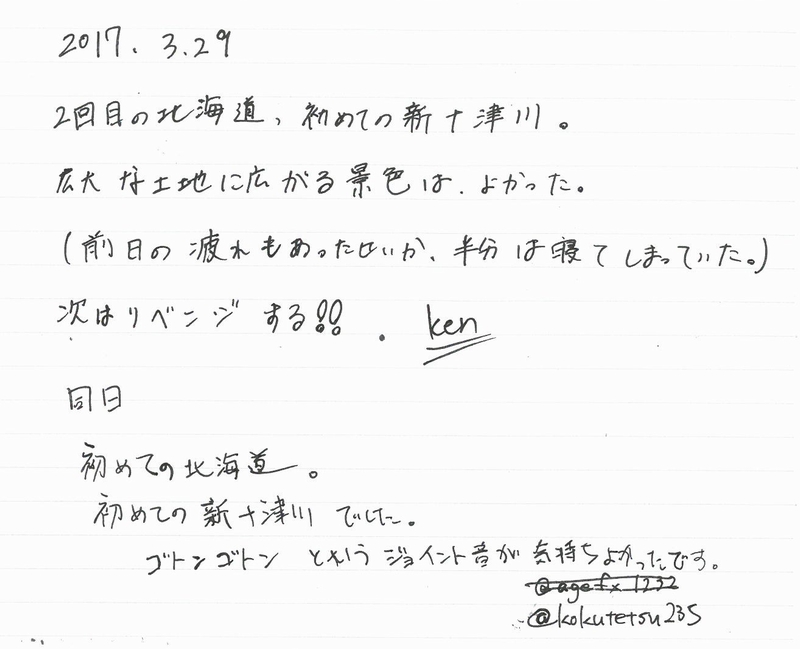 2017. 3.29
2回目の北海道、初めての新十津川。
広大な土地に広がる景色は、よかった。
(前日の疲れもあったせいか、半分は寝てしまっていた。)
次はリベンジする!! . ken
同日
初めての北海道。
初めての新十津川でした。
ゴトンゴトンというジョイント音が気持ちよかったです。
@agefx1232
@kokutetsu235